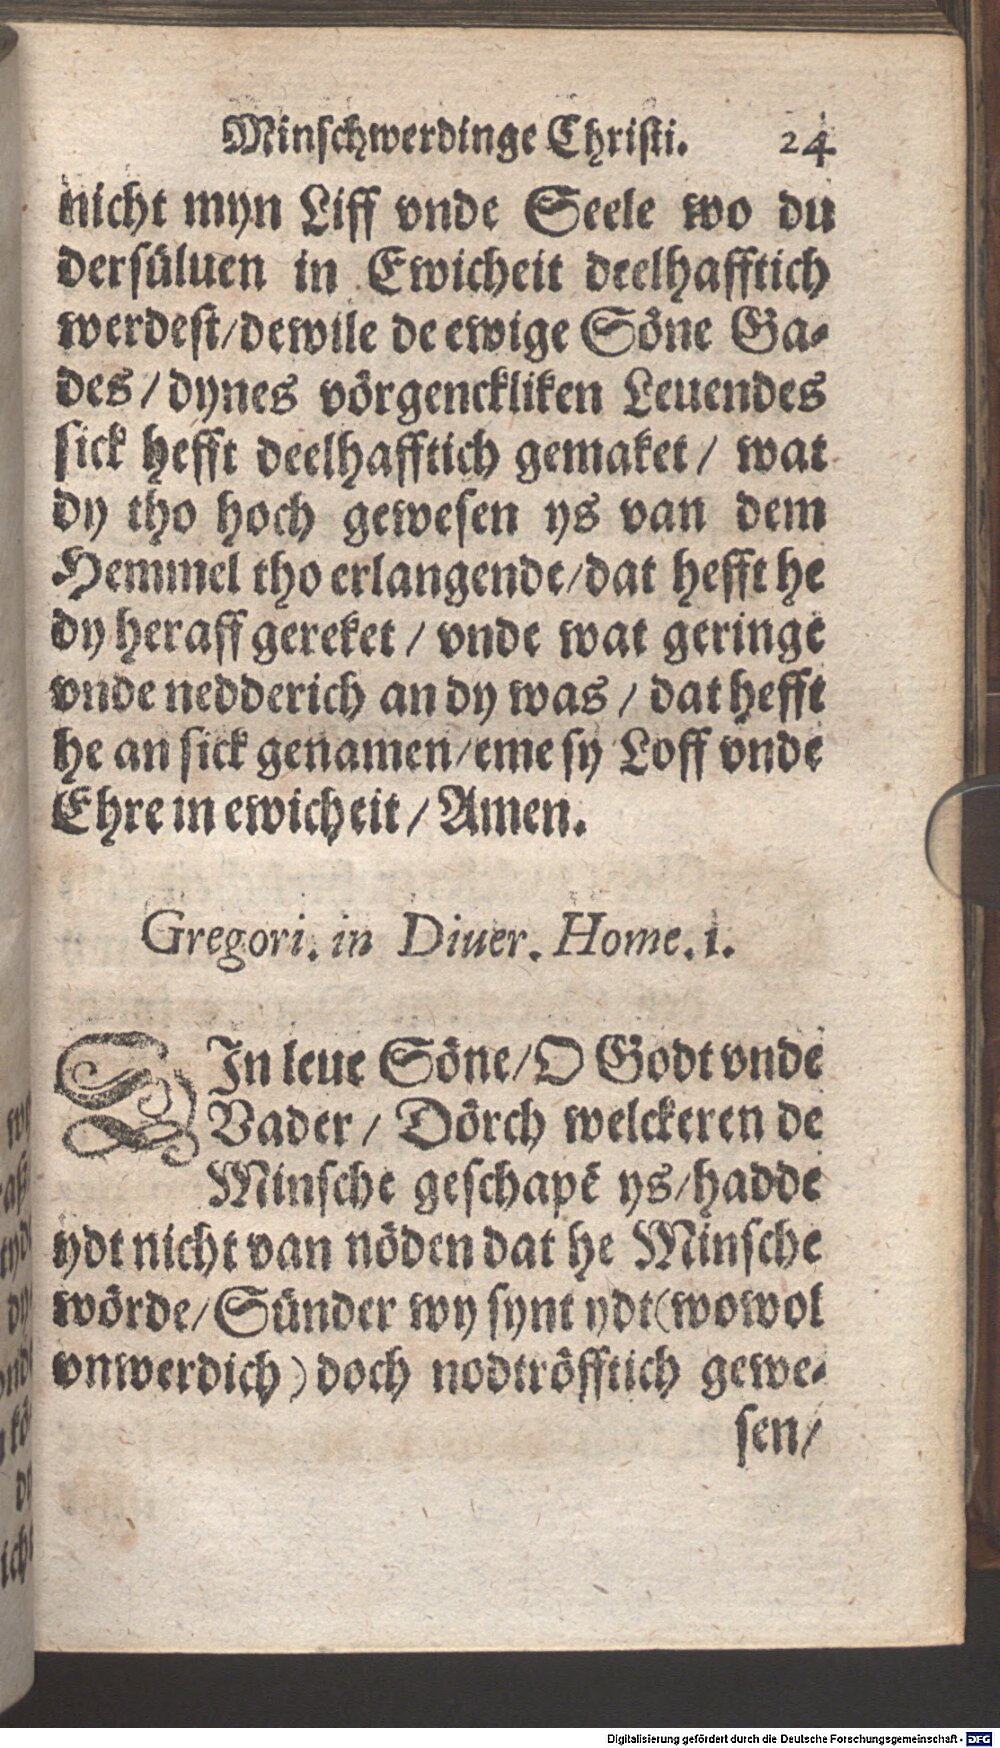 Minschwerdinge Christi. 24
nicht myn Liff vnde Seele wo du
dersüluen in Ewicheit deelhafftich
werdest/dewile de ewige Söne Ga-
des/dynes vörgenckliken Leuendes
sick hefft deelhafftich gemaket/ wat
dy tho hoch gewesen ys van dem
Hemmel tho erlangende/dat hefft he
dy heraff gereket/ vnde wat geringe
vnde nedderich an dy was/ dat hefft
he an sick genamen/eme sy Loff vnde
Ehre in ewicheit/Amen.
Gregori. in Diuer. Home. 1.
DIn leue Söne/O Godt vnde
Vader/ Dörch welckeren de
Minsche geschapē ys/hadde
ydt nicht van nöden dat he Minsche
wörde/Sünder wy synt ydt(wowol
vnwerdich)doch nodtröfftich gewe-
sen/
Digitalisierung gefördert durch die Deutsche Forschungsgemeinschaft - DFG